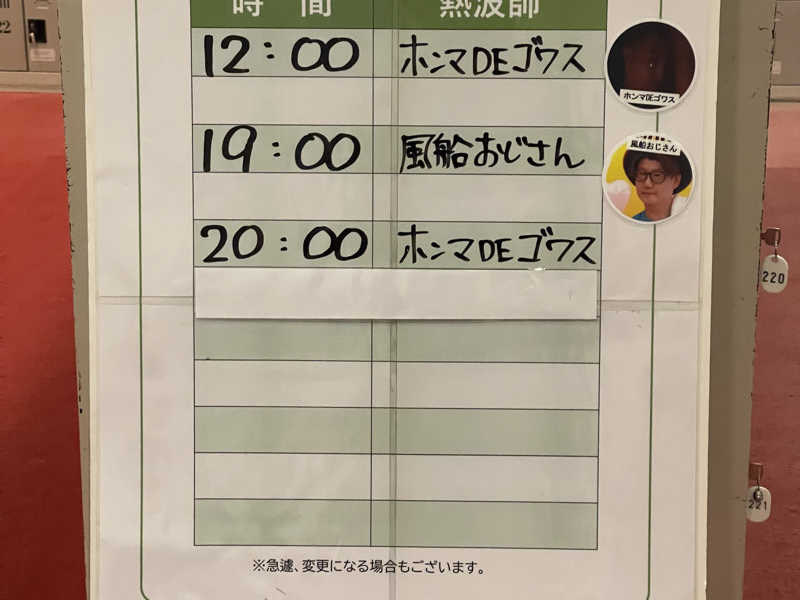 時間 熱波師
12:00 ホンマDEゴワス
ホンマDEゴワス
19:00 風船おじさん
風船おじさん
20:00 ホンマDEゴワス
220
221
※急遽、変更になる場合もございます。